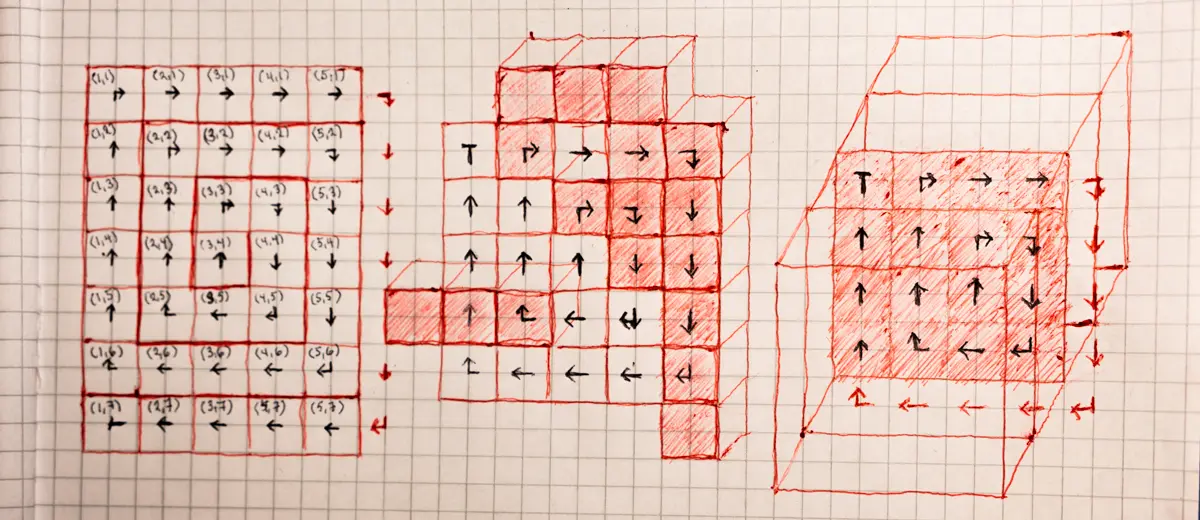 (1,1) (2,1) (3,1) (4,1) (5,1)
(1,2) (2,2) (3,2) (4,2) (5,2)
(1,3) (2,3) (3,3) (4,3) (5,3)
(1,4) (2,4) (3,4) (4,4) (5,4)
(1,5) (2,5) (3,5) (4,5) (5,5)
(1,6) (2,6) (3,6) (4,6) (5,6)
(1,7) (2,7) (3,7) (4,7) (5,7)